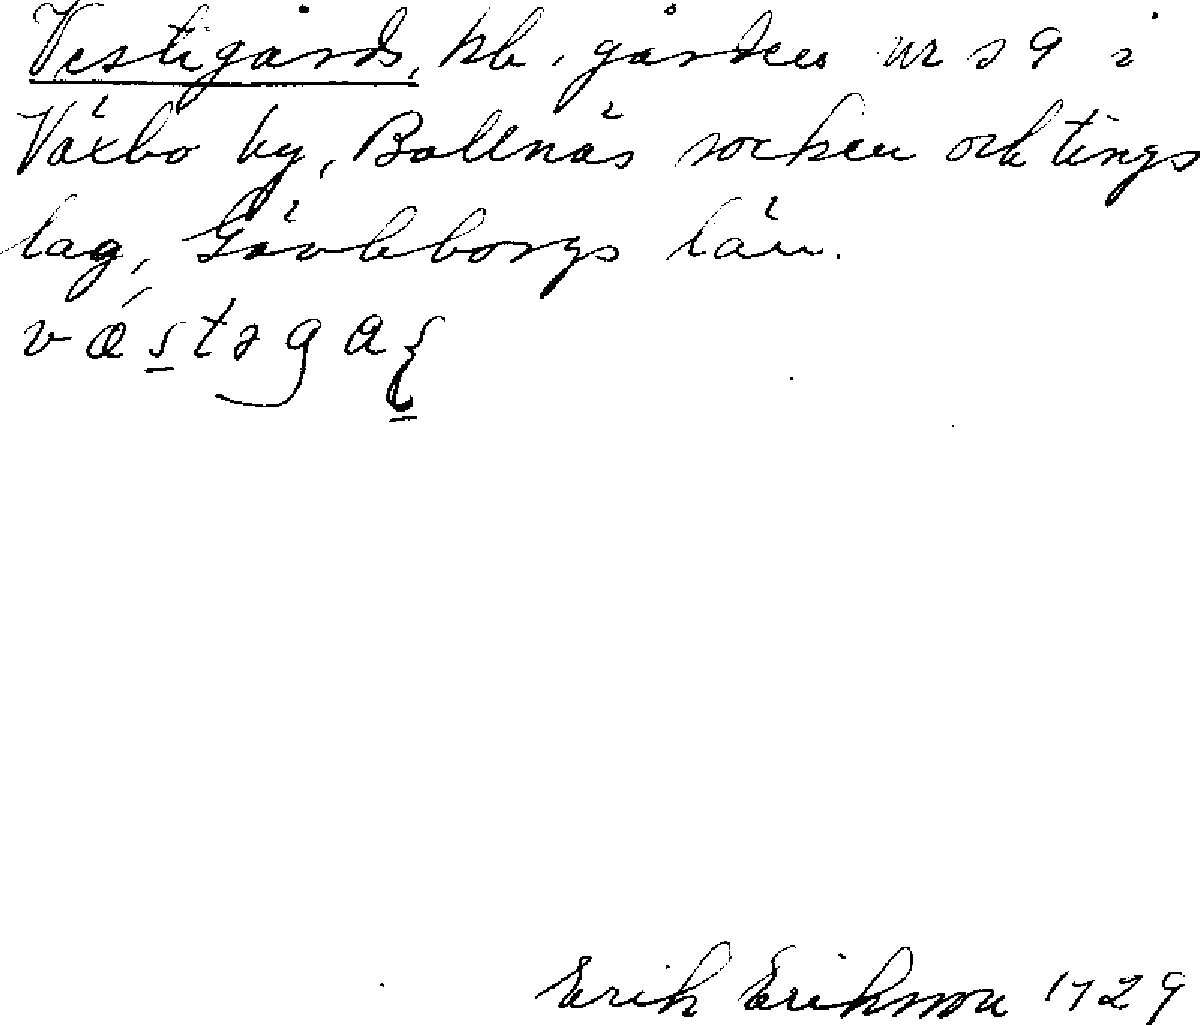 Vestigårds, kb. gården nr 29 i
Växbo by, Bollnäs socken och tings
lag, Gävleborgs län.
Erik Eriksson 1929